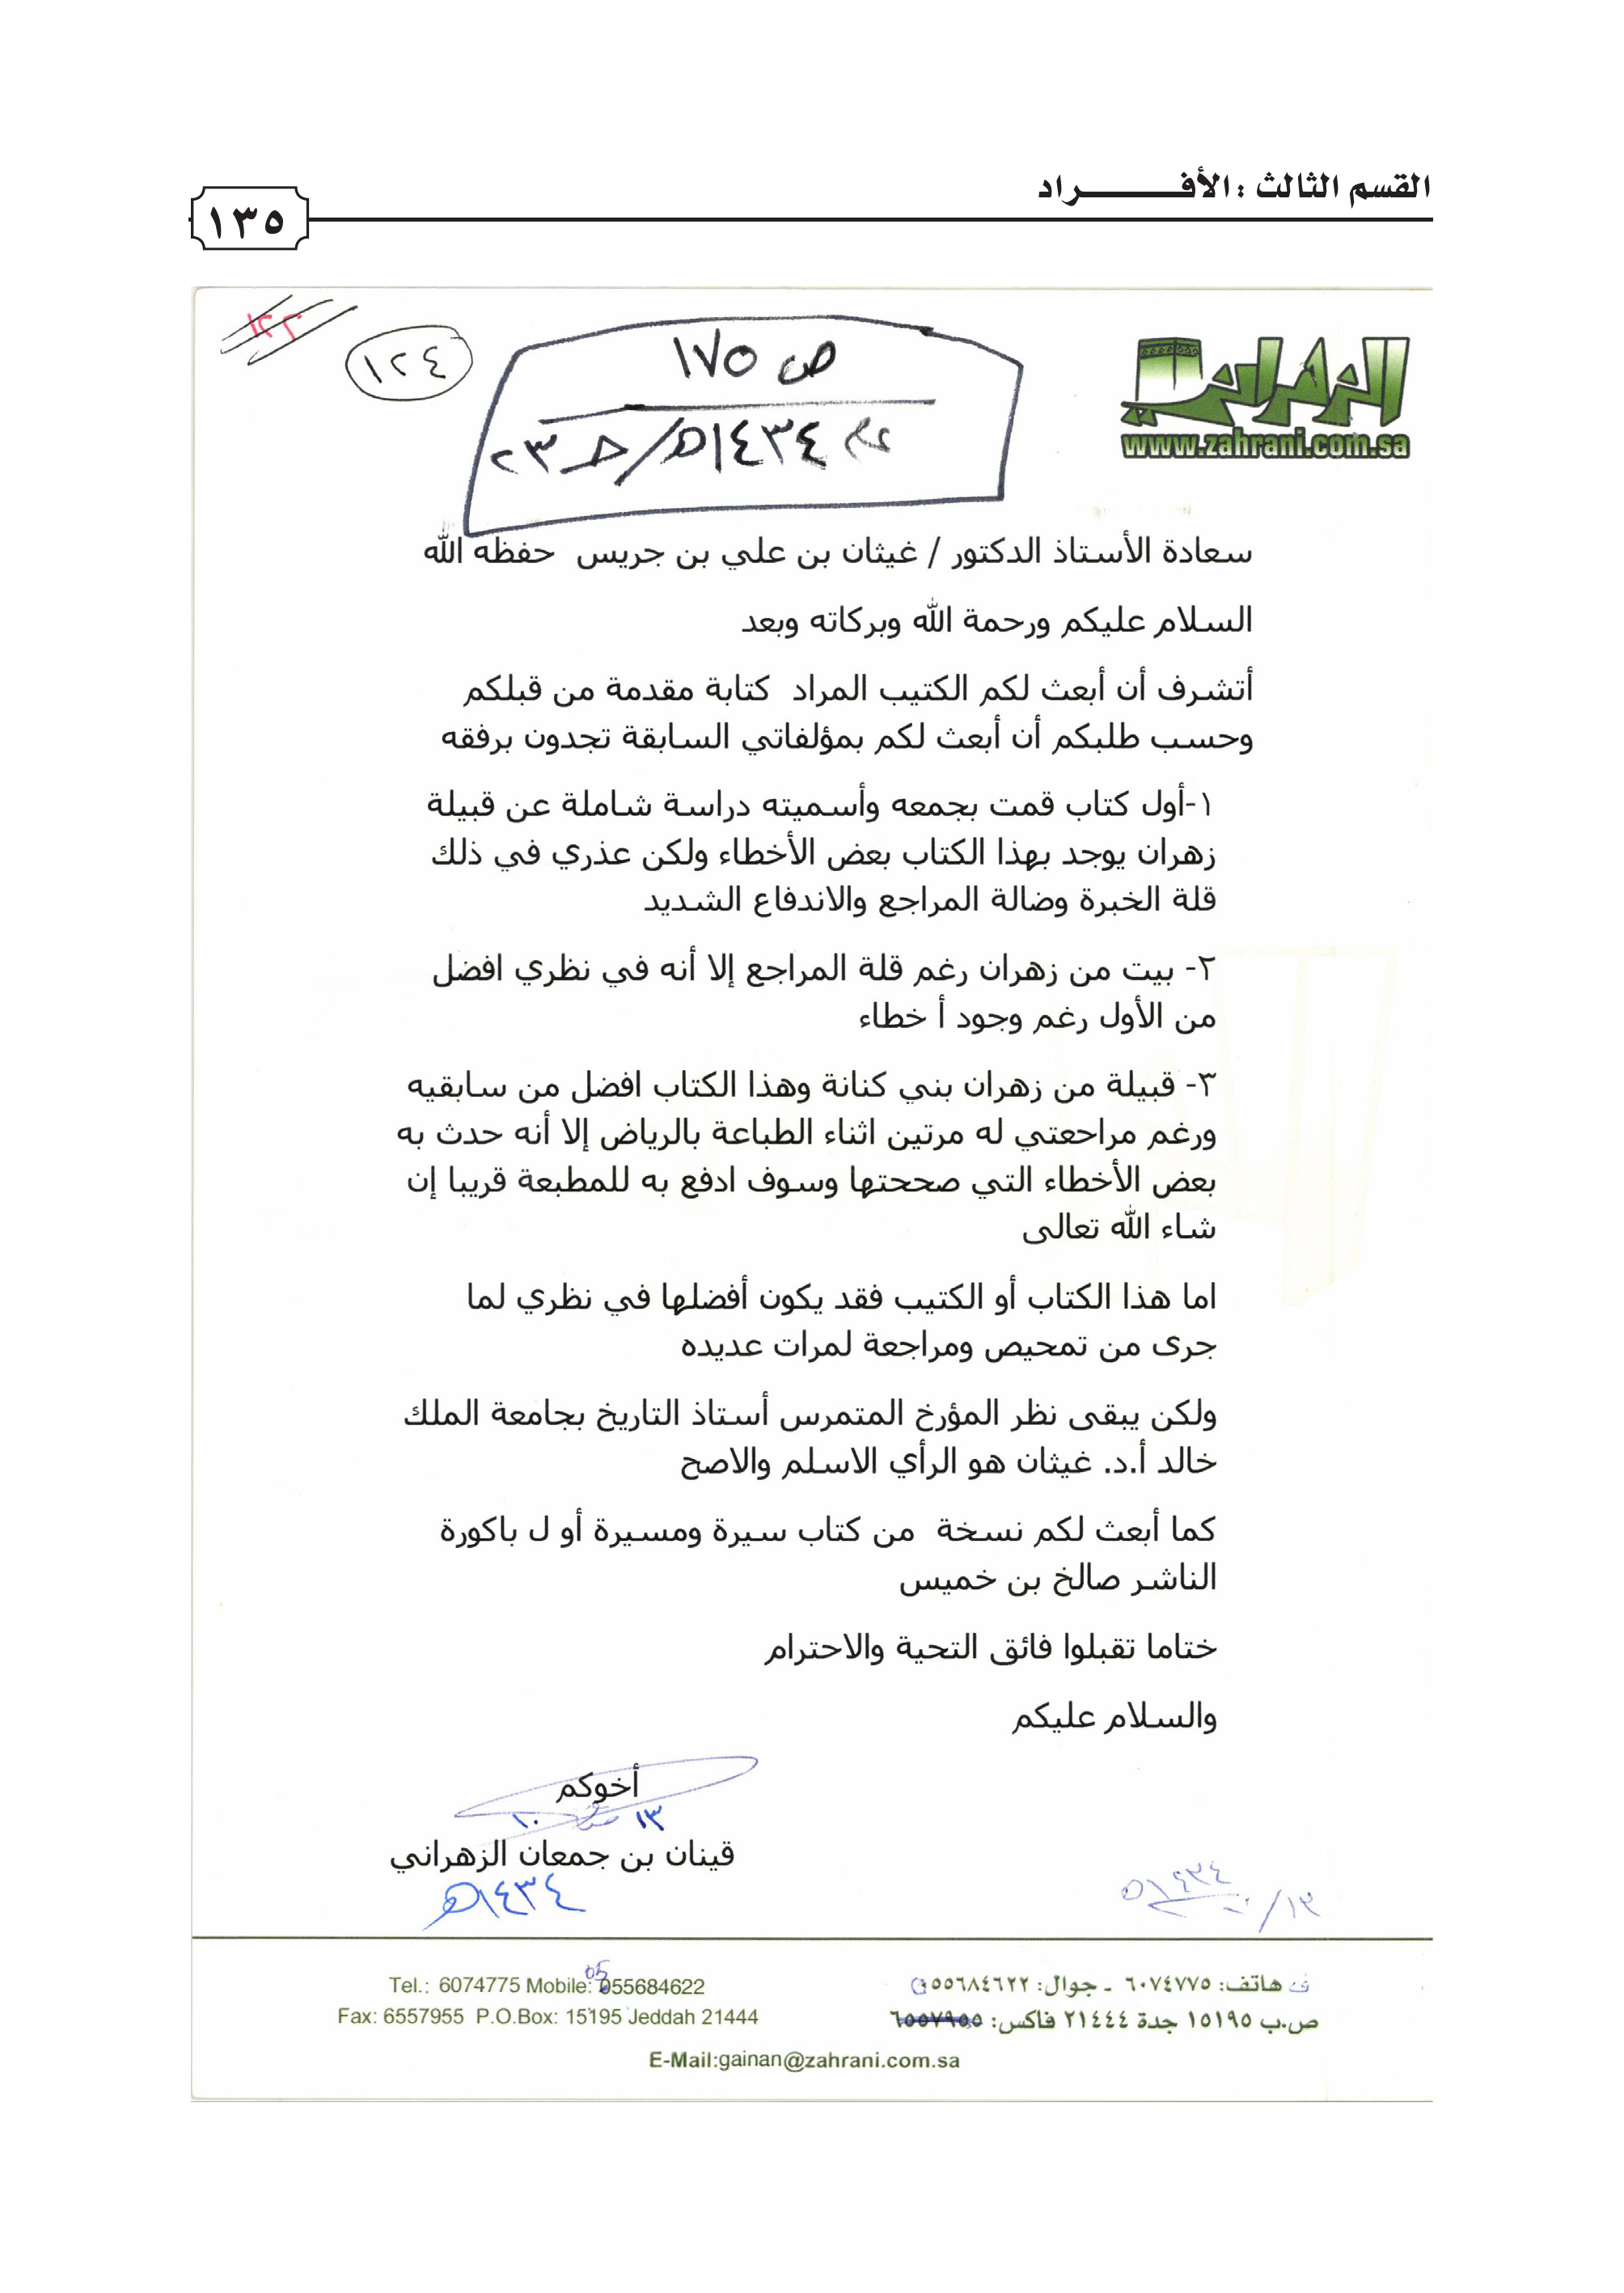 القسم الثالث : الأفـــــــــراد
١٣٥
١٢٤
ص ١٧٥
عام ١٤٣٤هـ/ حـ ٢٣
الزهراني
www.zahrani.com.sa
سعادة الأستاذ الدكتور / غيثان بن علي بن جريس حفظه الله
السلام عليكم ورحمة الله وبركاته وبعد
أتشرف أن أبعث لكم الكتيب المراد كتابة مقدمة من قبلكم
وحسب طلبكم أن أبعث لكم بمؤلفاتي السابقة تجدون برفقه
١-أول كتاب قمت بجمعه وأسميته دراسة شاملة عن قبيلة
زهران يوجد بهذا الكتاب بعض الأخطاء ولكن عذري في ذلك
قلة الخبرة وضالة المراجع والاندفاع الشديد
٢- بيت من زهران رغم قلة المراجع إلا أنه في نظري افضل
من الأول رغم وجود أ خطاء
٣- قبيلة من زهران بني كنانة وهذا الكتاب افضل من سابقيه
ورغم مراجعتي له مرتين اثناء الطباعة بالرياض إلا أنه حدث به
بعض الأخطاء التي صححتها وسوف ادفع به للمطبعة قريبا إن
شاء الله تعالى
اما هذا الكتاب أو الكتيب فقد يكون أفضلها في نظري لما
جرى من تمحيص ومراجعة لمرات عديده
ولكن يبقى نظر المؤرخ المتمرس أستاذ التاريخ بجامعة الملك
خالد أ.د. غيثان هو الرأي الاسلم والاصح
كما أبعث لكم نسخة من كتاب سيرة ومسيرة أو ل باكورة
الناشر صالخ بن خميس
ختاما تقبلوا فائق التحية والاحترام
والسلام عليكم
أخوكم
١٣ ١٠
قينان بن جمعان الزهراني
١٤٣٤هـ
Tel.: 6074775 Mobile: 055684622
هاتف: ٦٠٧٤٧٧٥ ـ جوال: ٠٥٥٦٨٤٦٢٢
Fax: 6557955 P.O.Box: 15195 Jeddah 21444
ص.ب ١٥١٩٥ جدة ٢١٤٤٤ فاكس: ٦٥٥٧٩٥٥
E-Mail:gainan@zahrani.com.sa